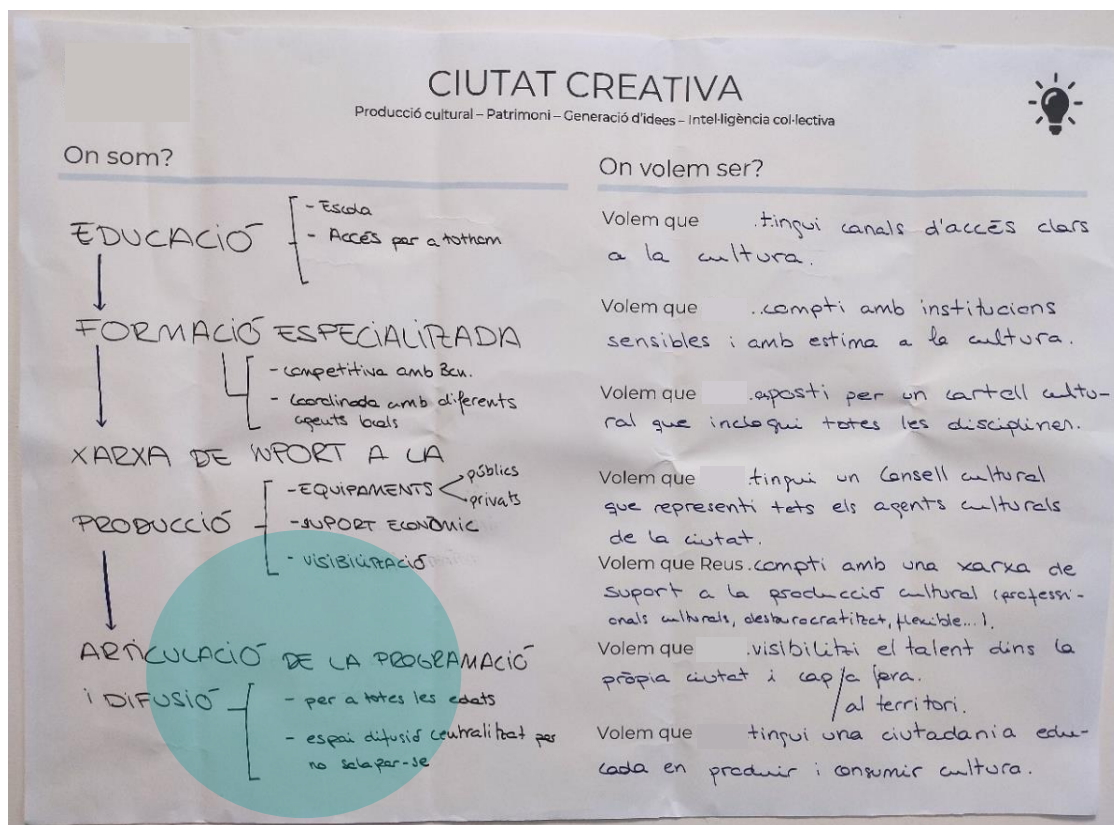 CIUTAT CREATIVA
Producció cultural – Patrimoni – Generació d'idees – Intel·ligència col·lectiva
On som?
EDUCACIÓ
- Escola
- Accés per a tothom
FORMACIÓ ESPECIALITZADA
- competitiva amb Bcn.
- Coordinada amb diferents
agents locals
XARXA DE SUPORT A LA
PRODUCCIÓ
- EQUIPAMENTS
públics
privats
- SUPORT ECONÒMIC
- VISIBILITZACIÓ
ARTICULACIÓ DE LA PROGRAMACIÓ
i DIFUSIÓ
- per a totes les edats
- espai difusió centralitzat per
no solapar-se
On volem ser?
Volem que .tingui canals d'accés clars
a la cultura.
Volem que ..compti amb institucions
sensibles i amb estima a la cultura.
Volem que .aposti per un cartell cultu-
ral que inclogui totes les disciplines.
Volem que tingui un Consell cultural
que representi tots els agents culturals
de la ciutat.
Volem que Reus.compti amb una xarxa de
suport a la producció cultural (professi-
onals culturals, desburocratitzat, flexible...).
Volem que .visibilitzi el talent dins la
pròpia ciutat i cap a fora.
/al territori.
Volem que tingui una ciutadania edu-
cada en produir i consumir cultura.